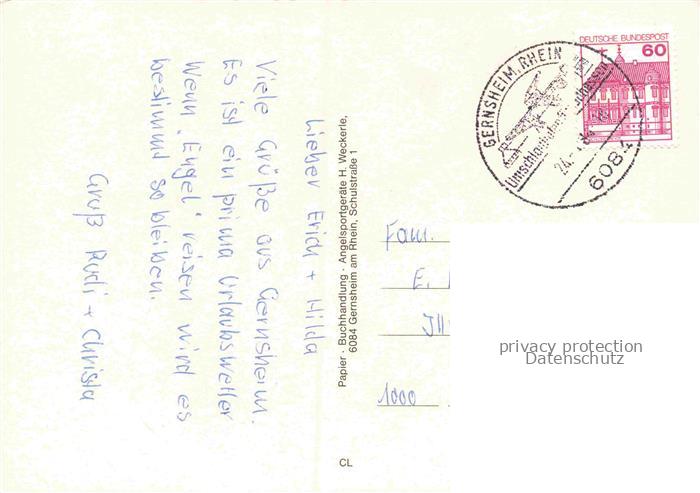 Lieber Erich + Hilda
Viele Grüße aus Gernsheim.
Es ist ein prima Urlaubswetter
Wenn „Engel“ reisen wird es
bestimmt so bleiben.
Gruß Rudi + Christa
Papier · Buchhandlung · Angelsportgeräte H. Weckerle,
6084 Gernsheim am Rhein, Schulstraße 1
CL
DEUTSCHE BUNDESPOST
60
GERNSHEIM, RHEIN
Umschlaghafen
24.
84
6084
Fam.
E.
1000
privacy protection
Datenschutz